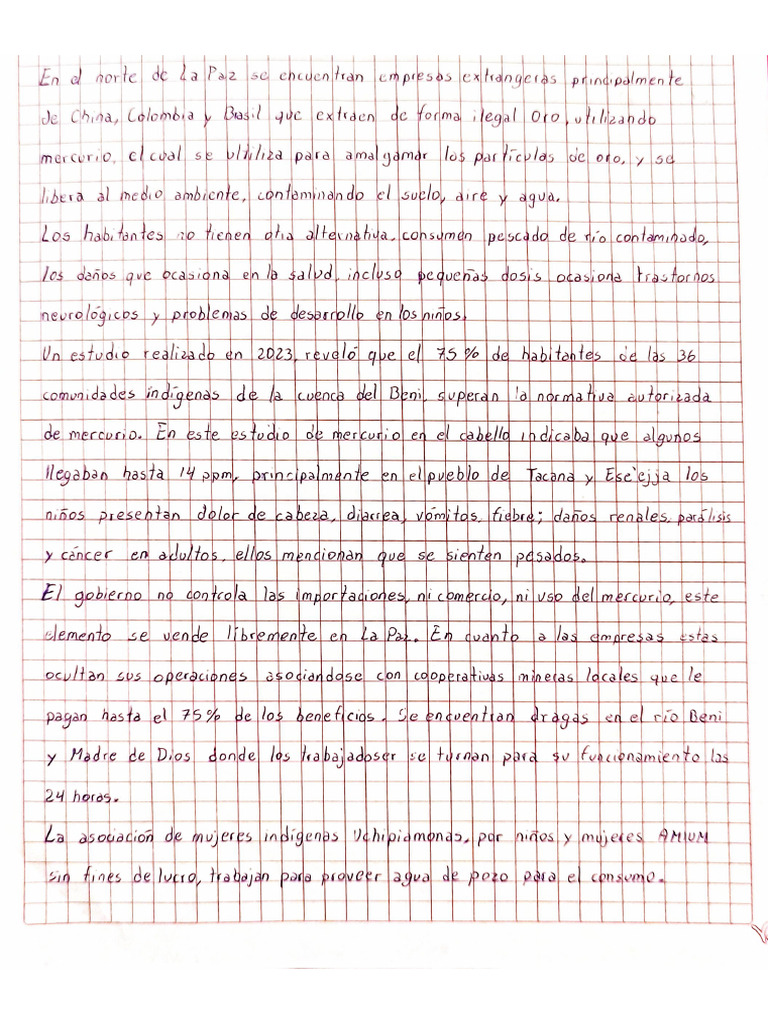 En el norte de La Paz se encuentran empresas extrangeras principalmente
de China, Colombia y Brasil que extraen de forma ilegal oro, utilizando
mercurio, el cual se ultiliza para amalgamar las partículas de oro, y se
libera al medio ambiente, contaminando el suelo, aire y agua.
Los habitantes no tienen otra alternativa, consumen pescado de río contaminado,
los daños que ocasiona en la salud, incluso pequeñas dosis ocasiona trastornos
neurológicos y problemas de desarrollo en los niños.
Un estudio realizado en 2023, reveló que el 75% de habitantes de las 36
comunidades indígenas de la cuenca del Beni, superan la normativa autorizada
de mercurio. En este estudio de mercurio en el cabello indicaba que algunos
llegaban hasta 14 ppm, principalmente en el pueblo de Tacana y Ese'ejja los
niños presentan dolor de cabeza, diarrea, vómitos, fiebre; daños renales, parálisis
y cáncer en adultos, ellos mencionan que se sienten pesados.
El gobierno no controla las importaciones, ni comercio, ni uso del mercurio, este
elemento se vende libremente en La Paz. En cuanto a las empresas estas
ocultan sus operaciones asociandose con cooperativas mineras locales que le
pagan hasta el 75% de los beneficios. Se encuentran dragas en el río Beni
y Madre de Dios donde los trabajadoser se turnan para su funcionamiento las
24 horas.
La asociación de mujeres indígenas Uchipiamonas, por niños y mujeres AMIUM
sin fines de lucro, trabajan para proveer agua de pozo para el consumo.